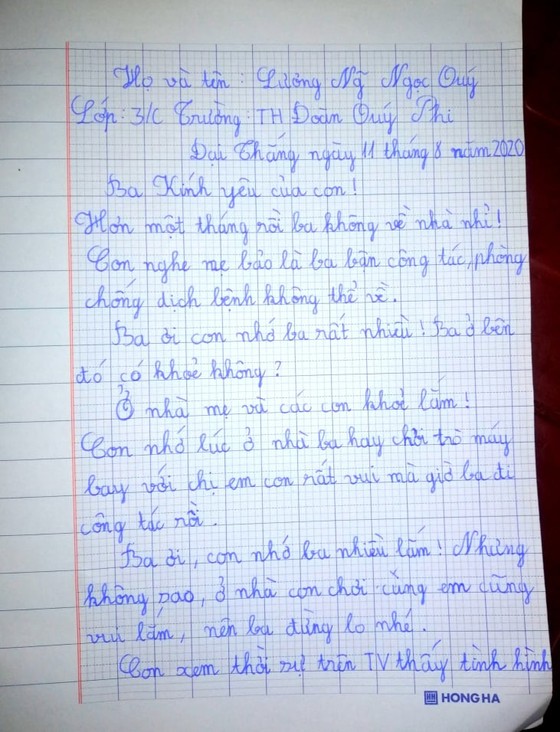 Họ và tên : Lương Ngô Ngọc Quý
Lớp : 3/C Trường : TH Đoàn Quý Phi
Đại Thắng ngày 11 tháng 8 năm 2020
Ba Kính yêu của con !
Hơn một tháng rồi ba không về nhà nhỉ !
Con nghe mẹ bảo là ba bận công tác, phòng
chống dịch bệnh không thể về.
Ba ơi con nhớ ba rất nhiều ! Ba ở bên
đó có khoẻ không ?
Ở nhà mẹ và các con khoẻ lắm !
Con nhớ lúc ở nhà ba hay chơi trò máy
bay với chị em con rất vui mà giờ ba đi
công tác rồi .
Ba ơi, con nhớ ba nhiều lắm ! Nhưng
không sao, ở nhà con chơi cùng em cũng
vui lắm, nên ba đừng lo nhé .
Con xem thời sự trên TV thấy tình hình
HONG HA